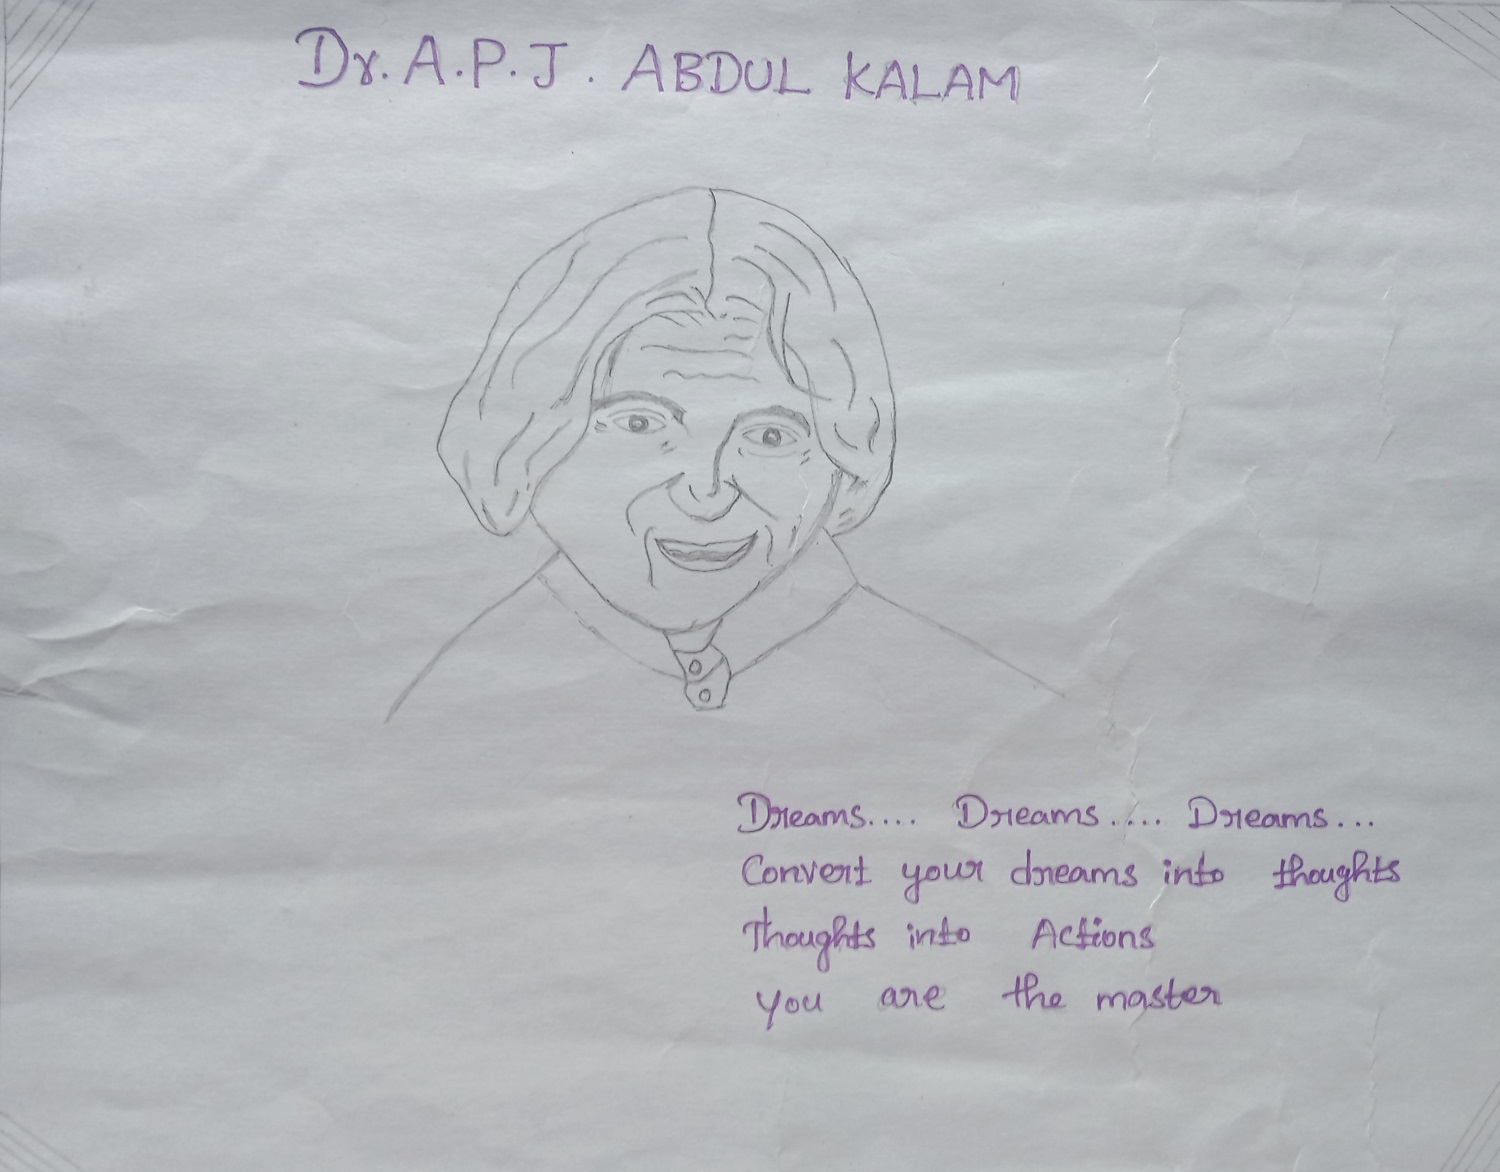 Dr. A.P.J. ABDUL KALAM
Dreams.... Dreams.... Dreams...
Convert your dreams into thoughts
Thoughts into Actions
you are the master